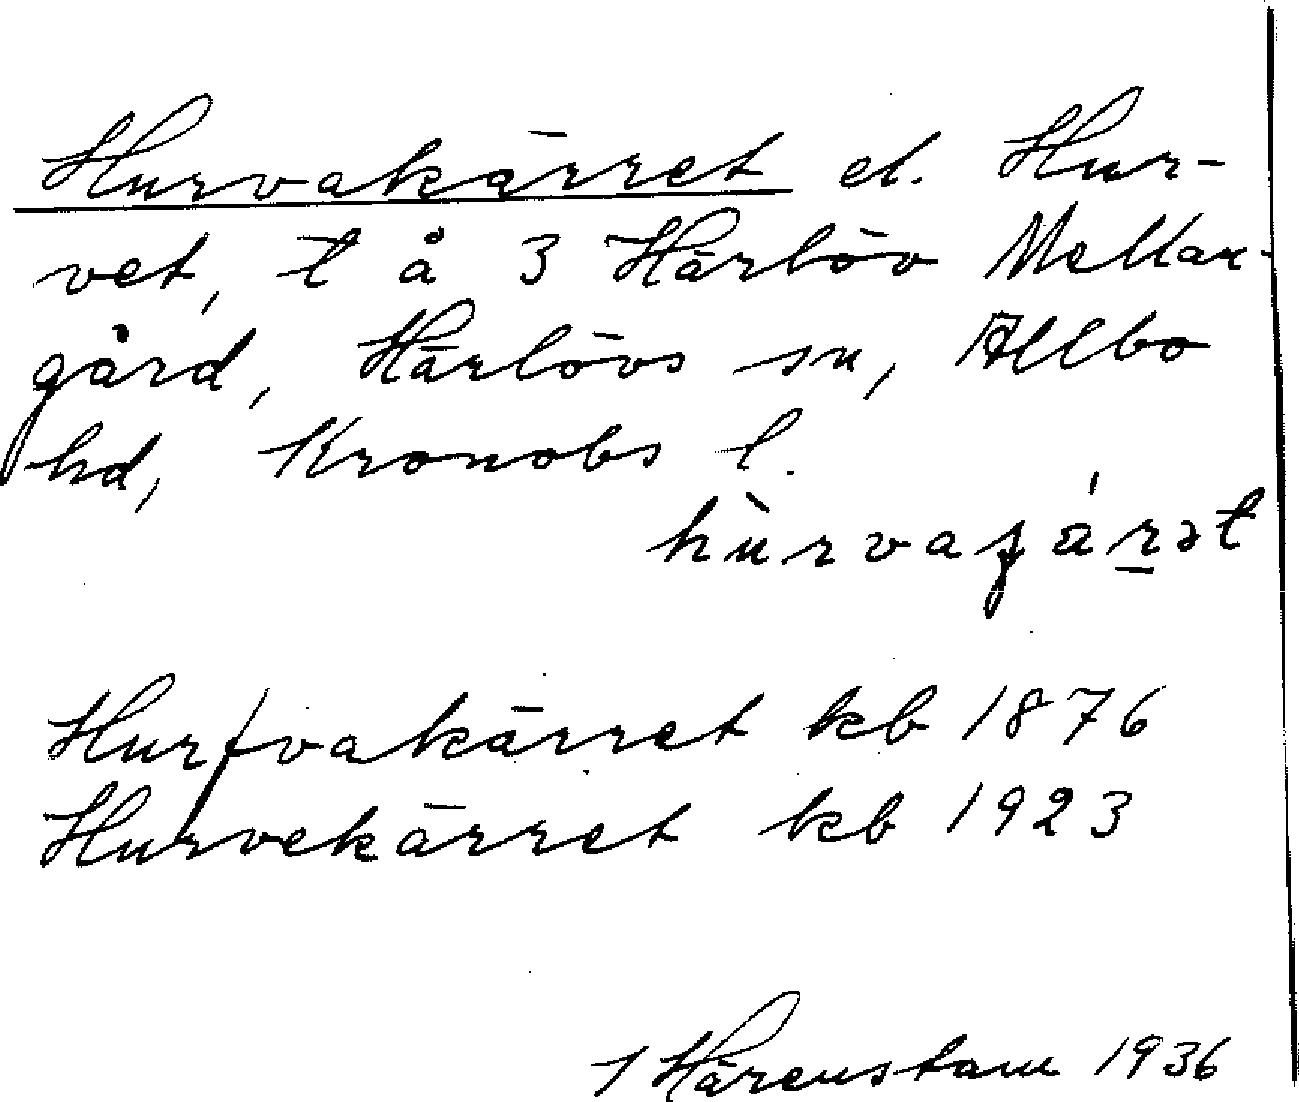 Hurvakärret el. Hur-
vet, t å 3 Härlöv Mellan-
gård, Härlövs sn, Allbo
hd, Kronobs l.
hùrvaʃä́rət
Hurfvakärret kb 1876
Hurvekärret kb 1923
J Härenstam 1936